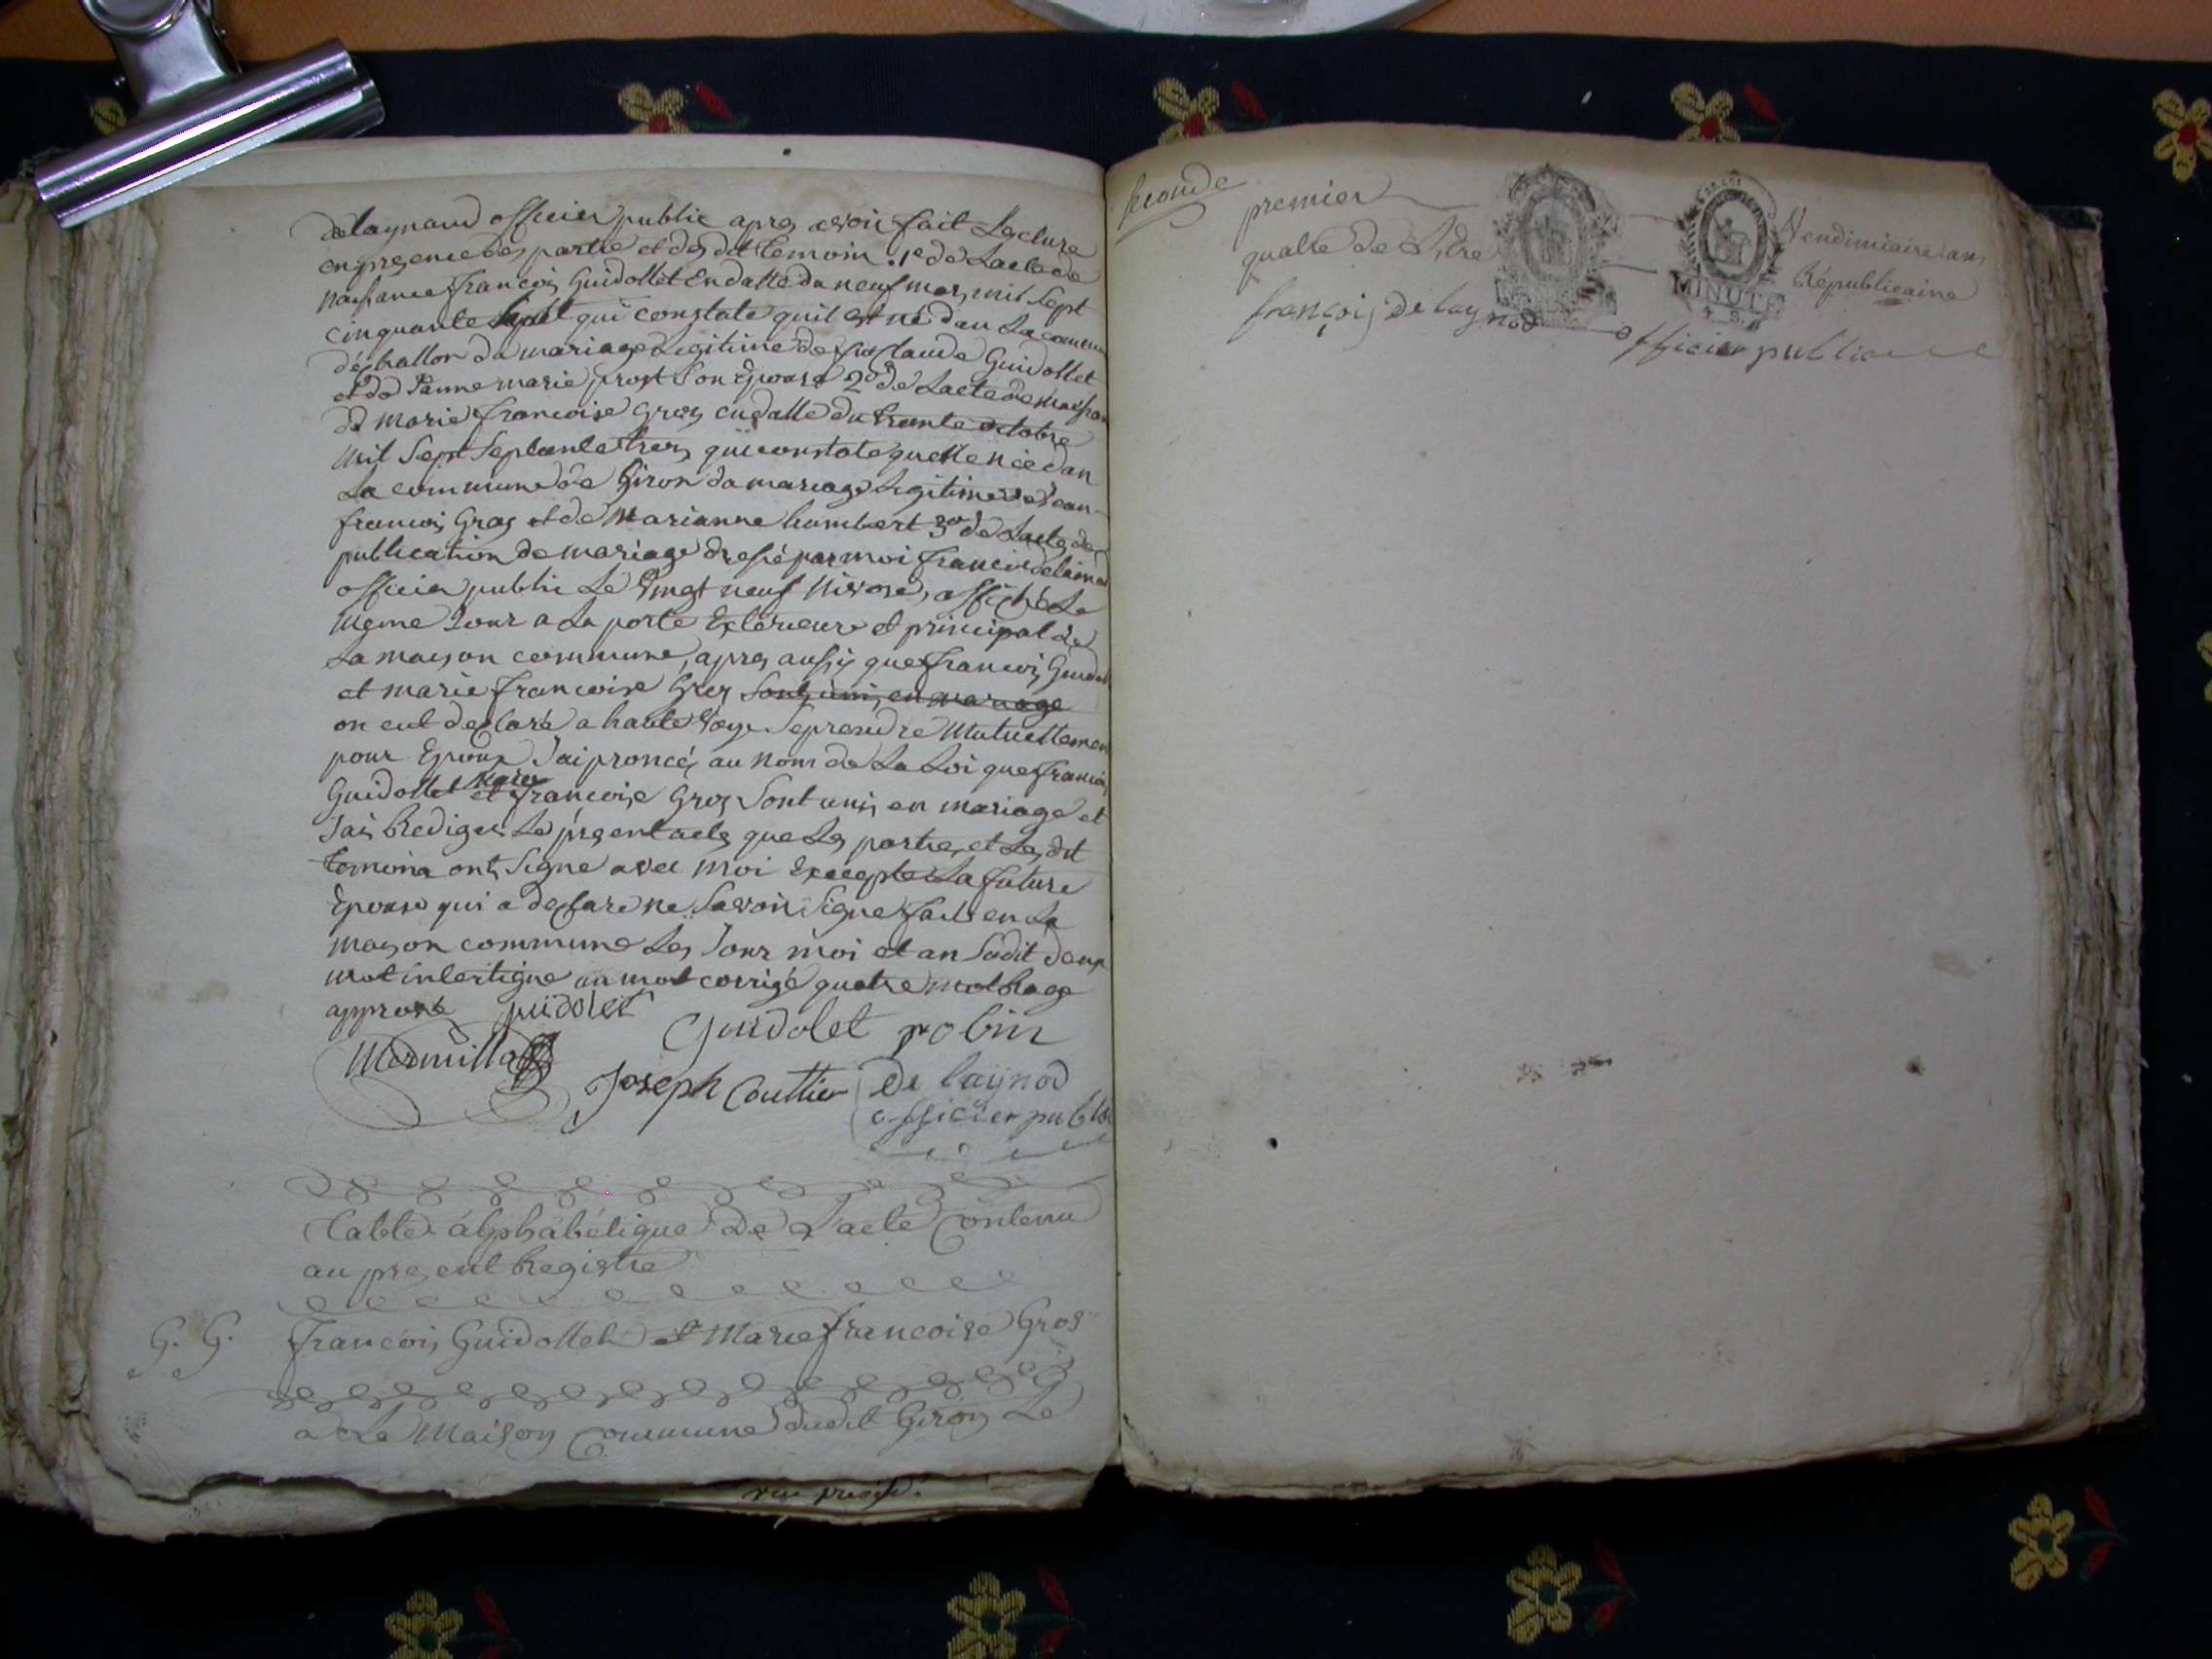 delaynaud officier public apres avoir fait Lecture
en presence des partie et des dit temoin . 1e de Lacte de
naissance françois Guidollet en datte du neuf mars mil sept
cinquante sept qui constate quil est né dan La commune
déchallon du mariage Legitime de fu Claude Guidollet
et de Janne marie prost son Epouse 2o de Lacte de naissan
de marie francoise Gros en datte du trente octobre
mil Sept Septante trois qui constate quelle née dan
La commune de Giron du mariage Legitime de Jean
francois Gros et de Marianne humbert 3o de Lacte de
publication de mariage dressé par moi francois delaino
officier public Le vingt neuf Nivose, affiché Le
meme Jour a La porte Exterieure et principal de
La maison commune, apres aussy que francois Guidol
et marie francoise Gros sont unis en mariage
on eut declaré a haute voye Se prendre Mutuellemen
pour Epoux J'ai proncés au nom de La Loi que francois
Guidollet et marie francoise Gros Sont unis en mariage et
J'ais Rediger Le present acte que Les partie et Les dit
temoins ont Signe avec moi Excepte La future
Epouse qui a declare ne Savoir Signe fait en La
maison commune Les Jour moi et an Sudit deux
mot interligne un mot corrigé quatre mot Raye
approuve guidolet
Guidolet robin
Mermillod
Joseph Couttier De laynod
officier public
Table alphabétique De L'acte Contenu
au present Registre
G. G. francois Guidollet et Marie francoise Gros
a La Maison Commune dudit Giron Le
seconde
premier Vendimiaire an
quatre de L'Ere Républicaine
MINUTE
françois De laynod officier public